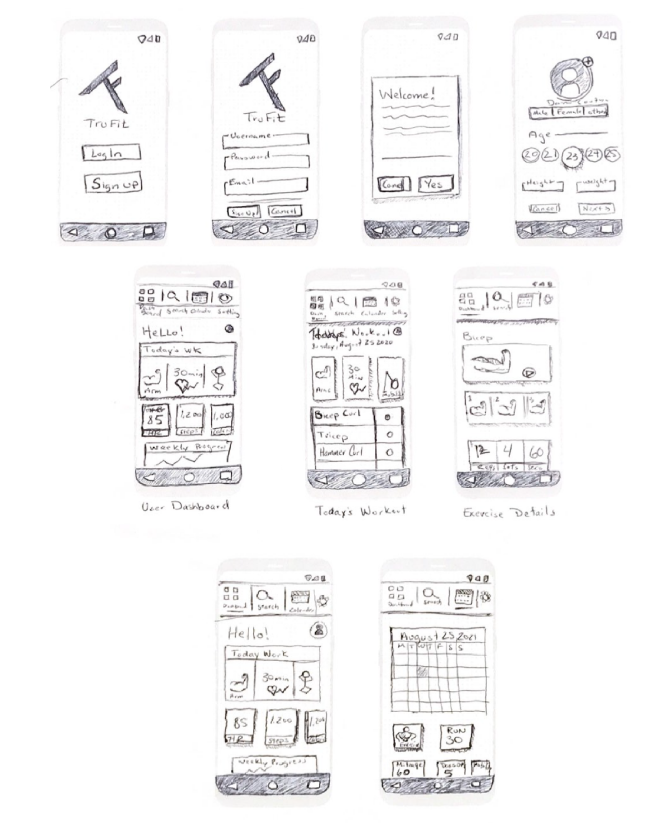 TruFit
Log In
Sign up
TruFit
Username
Password
Email
Sign Up
Cancel
Welcome!
Cancel
Yes
Male
Female
other
Age
20
21
23
24
25
Height
Weight
Cancel
Next
Search
Setting
Hello!
Today's Wk
30min
Arm
85
HR
1,200
Steps
Weekly Progress
User Dashboard
Search
Calendar
Setting
Today's Workout
Tuesday, August 25 2020
Arm
30
Min
Bicep Curl
Tricep
Hammer Curl
Today's Workout
Dashboard
Search
Bicep
1
2
3
12
4
60
Reps
Sets
Sec
Exercise Details
Dashboard
Search
Calendar
Hello!
Today Work
30min
Arm
85
HR
1,200
STEPS
1,200
Weekly Progress
Dashboard
Search
August 25 2021
M T W T F S S
RUN
30
Mileage
60
5